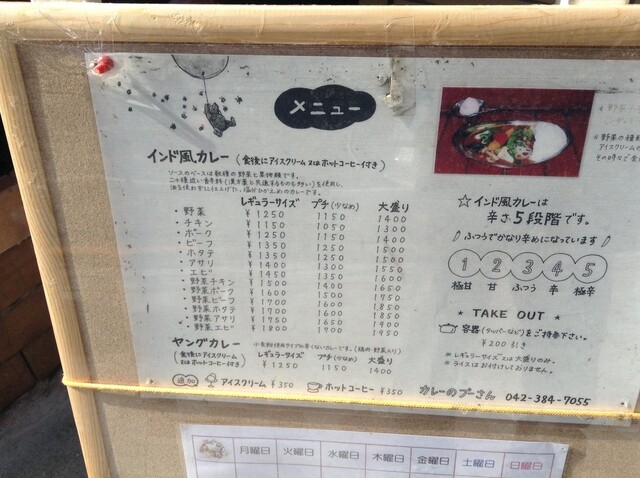 メニュー
インド風カレー (食後にアイスクリーム又はホットコーヒー付き)
ソースのベースは数種の野菜と果物類です。
二十種近い香辛料(漢方薬と共通するものも多い)を使用し、
油を使わずに仕上げた、塩分ひかえめのカレーです。
レギュラーサイズ プチ(少なめ) 大盛り
・野菜 ¥1250 1150 1400
・チキン ¥1150 1050 1300
・ポーク ¥1250 1150 1400
・ビーフ ¥1350 1250 1500
・ホタテ ¥1350 1250 1500
・アサリ ¥1400 1300 1550
・エビ ¥1450 1350 1600
・野菜チキン ¥1500 1400 1650
・野菜ポーク ¥1600 1500 1750
・野菜ビーフ ¥1700 1600 1850
・野菜ホタテ ¥1700 1600 1850
・野菜アサリ ¥1750 1650 1900
・野菜エビ ¥1800 1700 1950
ヤングカレー
(食後にアイスクリーム又はホットコーヒー付き)
レギュラーサイズ プチ(少なめ) 大盛り
¥1250 1150 1400
追加 アイスクリーム ¥350 ホットコーヒー ¥350
☆インド風カレーは
辛さ5段階です。
ふつうでかなり辛めになっています
1 2 3 4 5
極甘 甘 ふつう 辛 極辛
★ TAKE OUT ★
容器(タッパーなど)をご持参下さい。
¥200引き
※レギュラーサイズ又は大盛りのみ。
※ライスはお付けしておりません。
カレーのプーさん 042-384-7055
月曜日 火曜日 水曜日 木曜日 金曜日 土曜日 日曜日